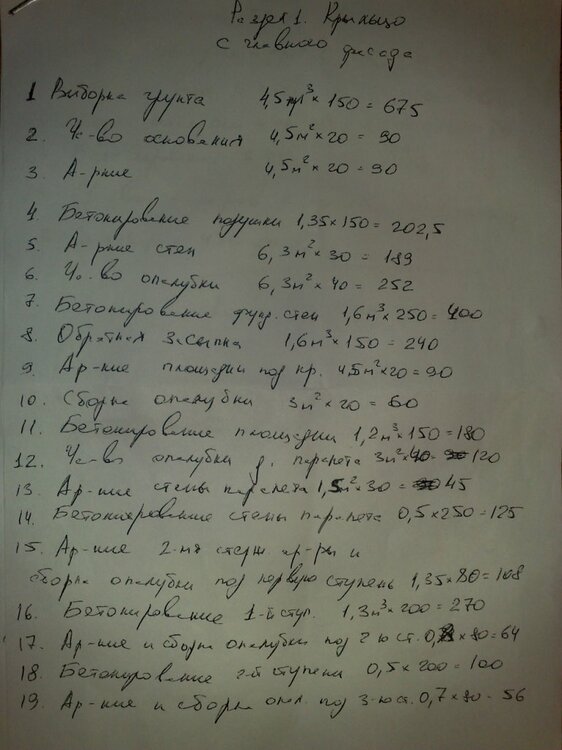 Раздел 1. Крыльцо
с главного фасада
1 Выборка грунта 4,5м³ × 150 = 675
2. Уч-во основания 4,5м² × 20 = 90
3. А-рние 4,5м² × 20 = 90
4. Бетонирование подушки 1,35 × 150 = 202,5
5. А-рние стен 6,3м² × 30 = 189
6. Уч-во опалубки 6,3м² × 40 = 252
7. Бетонирование фунд. стен 1,6м³ × 250 = 400
8. Обратная засыпка 1,6м³ × 150 = 240
9. Ар-ние площадки под кр. 4,5м² × 20 = 90
10. Сборка опалубки 3м² × 20 = 60
11. Бетонирование площадки 1,2м³ × 150 = 180
12. Уч-во опалубки д. парапета 3м² × 40 = 120
13. Ар-ние стены парапета 1,5м² × 30 = 45
14. Бетонирование стены парапета 0,5 × 250 = 125
15. Ар-ние 2-мя стерж ар-ры и
сборка опалубки под первую ступень 1,35 × 80 = 108
16. Бетонирование 1-й ступ. 1,3м³ × 200 = 270
17. Ар-ние и сборка опалубки под 2-ю ст. 0,8 × 80 = 64
18. Бетонирование 2-й ступени 0,5 × 200 = 100
19. Ар-ние и сборка опал. под 3-ю ст. 0,7 × 80 = 56